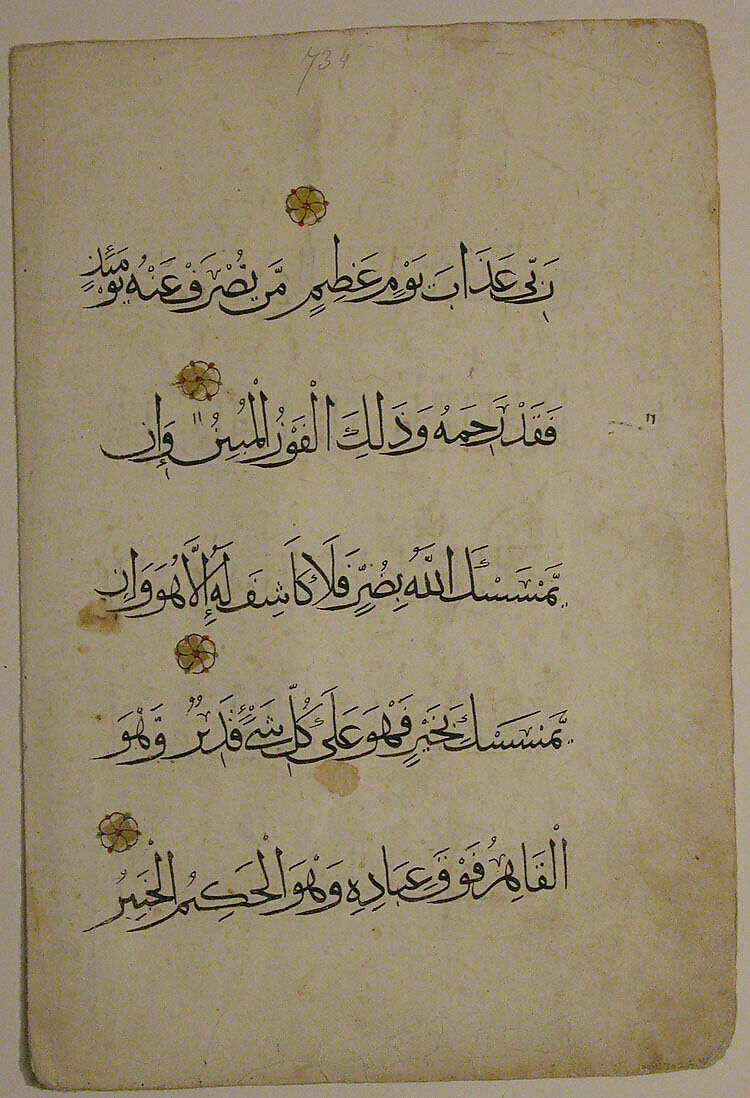 734
رَبِّى عَذَابَ يَوْمٍ عَظِيمٍ مَّن يُّصْرَفْ عَنْهُ يَوْمَئِذٍ
فَقَدْ رَحِمَهُ وَذَلِكَ الْفَوْزُ الْمُبِينُ وَإِن
يَّمْسَسْكَ اللَّهُ بِضُرٍّ فَلَا كَاشِفَ لَهُ إِلَّا هُوَ وَإِن
يَّمْسَسْكَ بِخَيْرٍ فَهْوَ عَلَى كُلِّ شَىْءٍ قَدِيرٌ وَّهْوَ
الْقَاهِرُ فَوْقَ عِبَادِهِ وَهْوَ الْحَكِيمُ الْخَبِيرُ